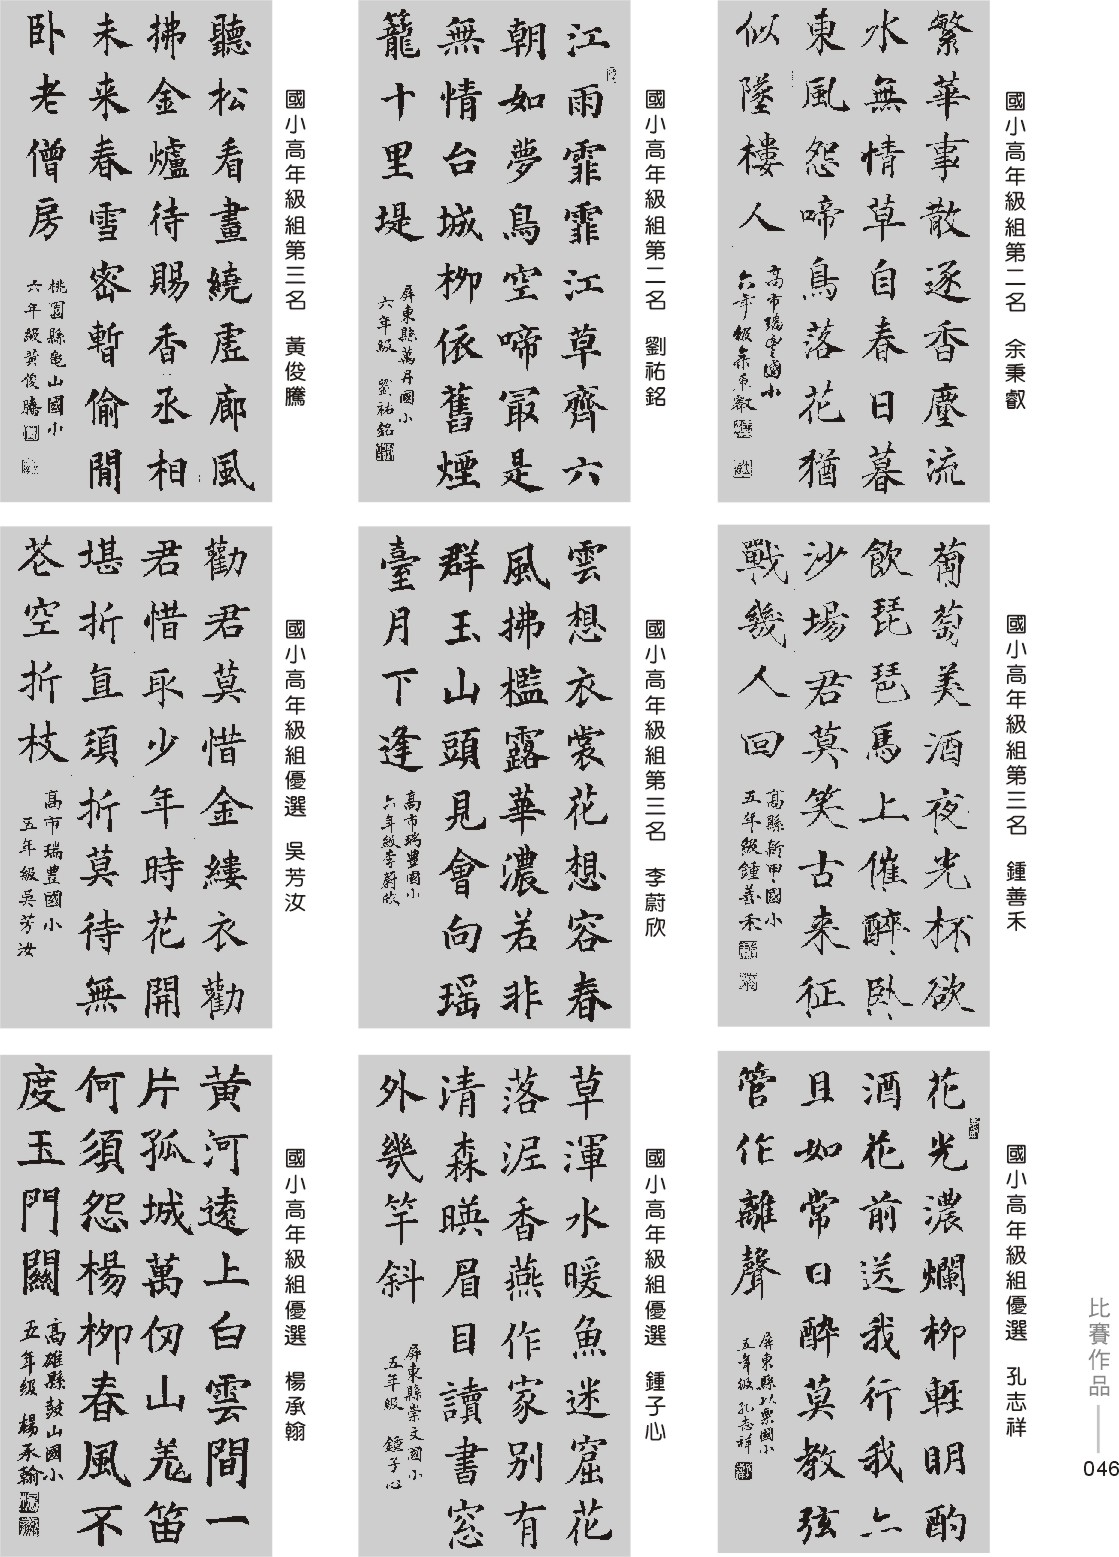 國小高年級組第二名 余秉叡
繁華事散逐香塵流
水無情草自春日暮
東風怨啼鳥落花猶
似墜樓人
高市瑞豊國小
六年級余秉叡
國小高年級組第二名 劉祐銘
江雨霏霏江草齊六
朝如夢鳥空啼冣是
無情台城柳依舊煙
籠十里堤
屏東縣萬丹國小
六年級 劉祐銘
國小高年級組第三名 黃俊騰
聽松看畫繞虛廊風
拂金爐待賜香丞相
未来春雪密暫偷閒
卧老僧房
桃園縣龜山國小
六年級黃俊騰
國小高年級組第三名 鍾善禾
葡萄美酒夜光杯欲
飲琵琶馬上催醉卧
沙場君莫笑古来征
戰幾人回
高縣新甲國小
五年級鍾善禾
國小高年級組第三名 李蔚欣
雲想衣裳花想容春
風拂檻露華濃若非
群玉山頭見會向瑤
臺月下逢
高市瑞豊國小
六年級李蔚欣
國小高年級組優選 吳芳汝
勸君莫惜金縷衣勸
君惜取少年時花開
堪折直須折莫待無
花空折枝
高市瑞豊國小
五年級吳芳汝
國小高年級組優選 孔志祥
花光濃爛柳輕明酌
酒花前送我行我亦
且如常日醉莫教弦
管作離聲
屏東縣以栗國小
五年級孔志祥
國小高年級組優選 鍾子心
草渾水暖魚迷窟花
落泥香燕作家別有
清森暎眉目讀書窓
外幾竿斜
屏東縣崇文國小
五年級 鍾子心
國小高年級組優選 楊承翰
黃河遠上白雲間一
片孤城萬仞山羌笛
何須怨楊柳春風不
度玉門關
高雄縣鼓山國小
五年級 楊承翰
比賽作品
046